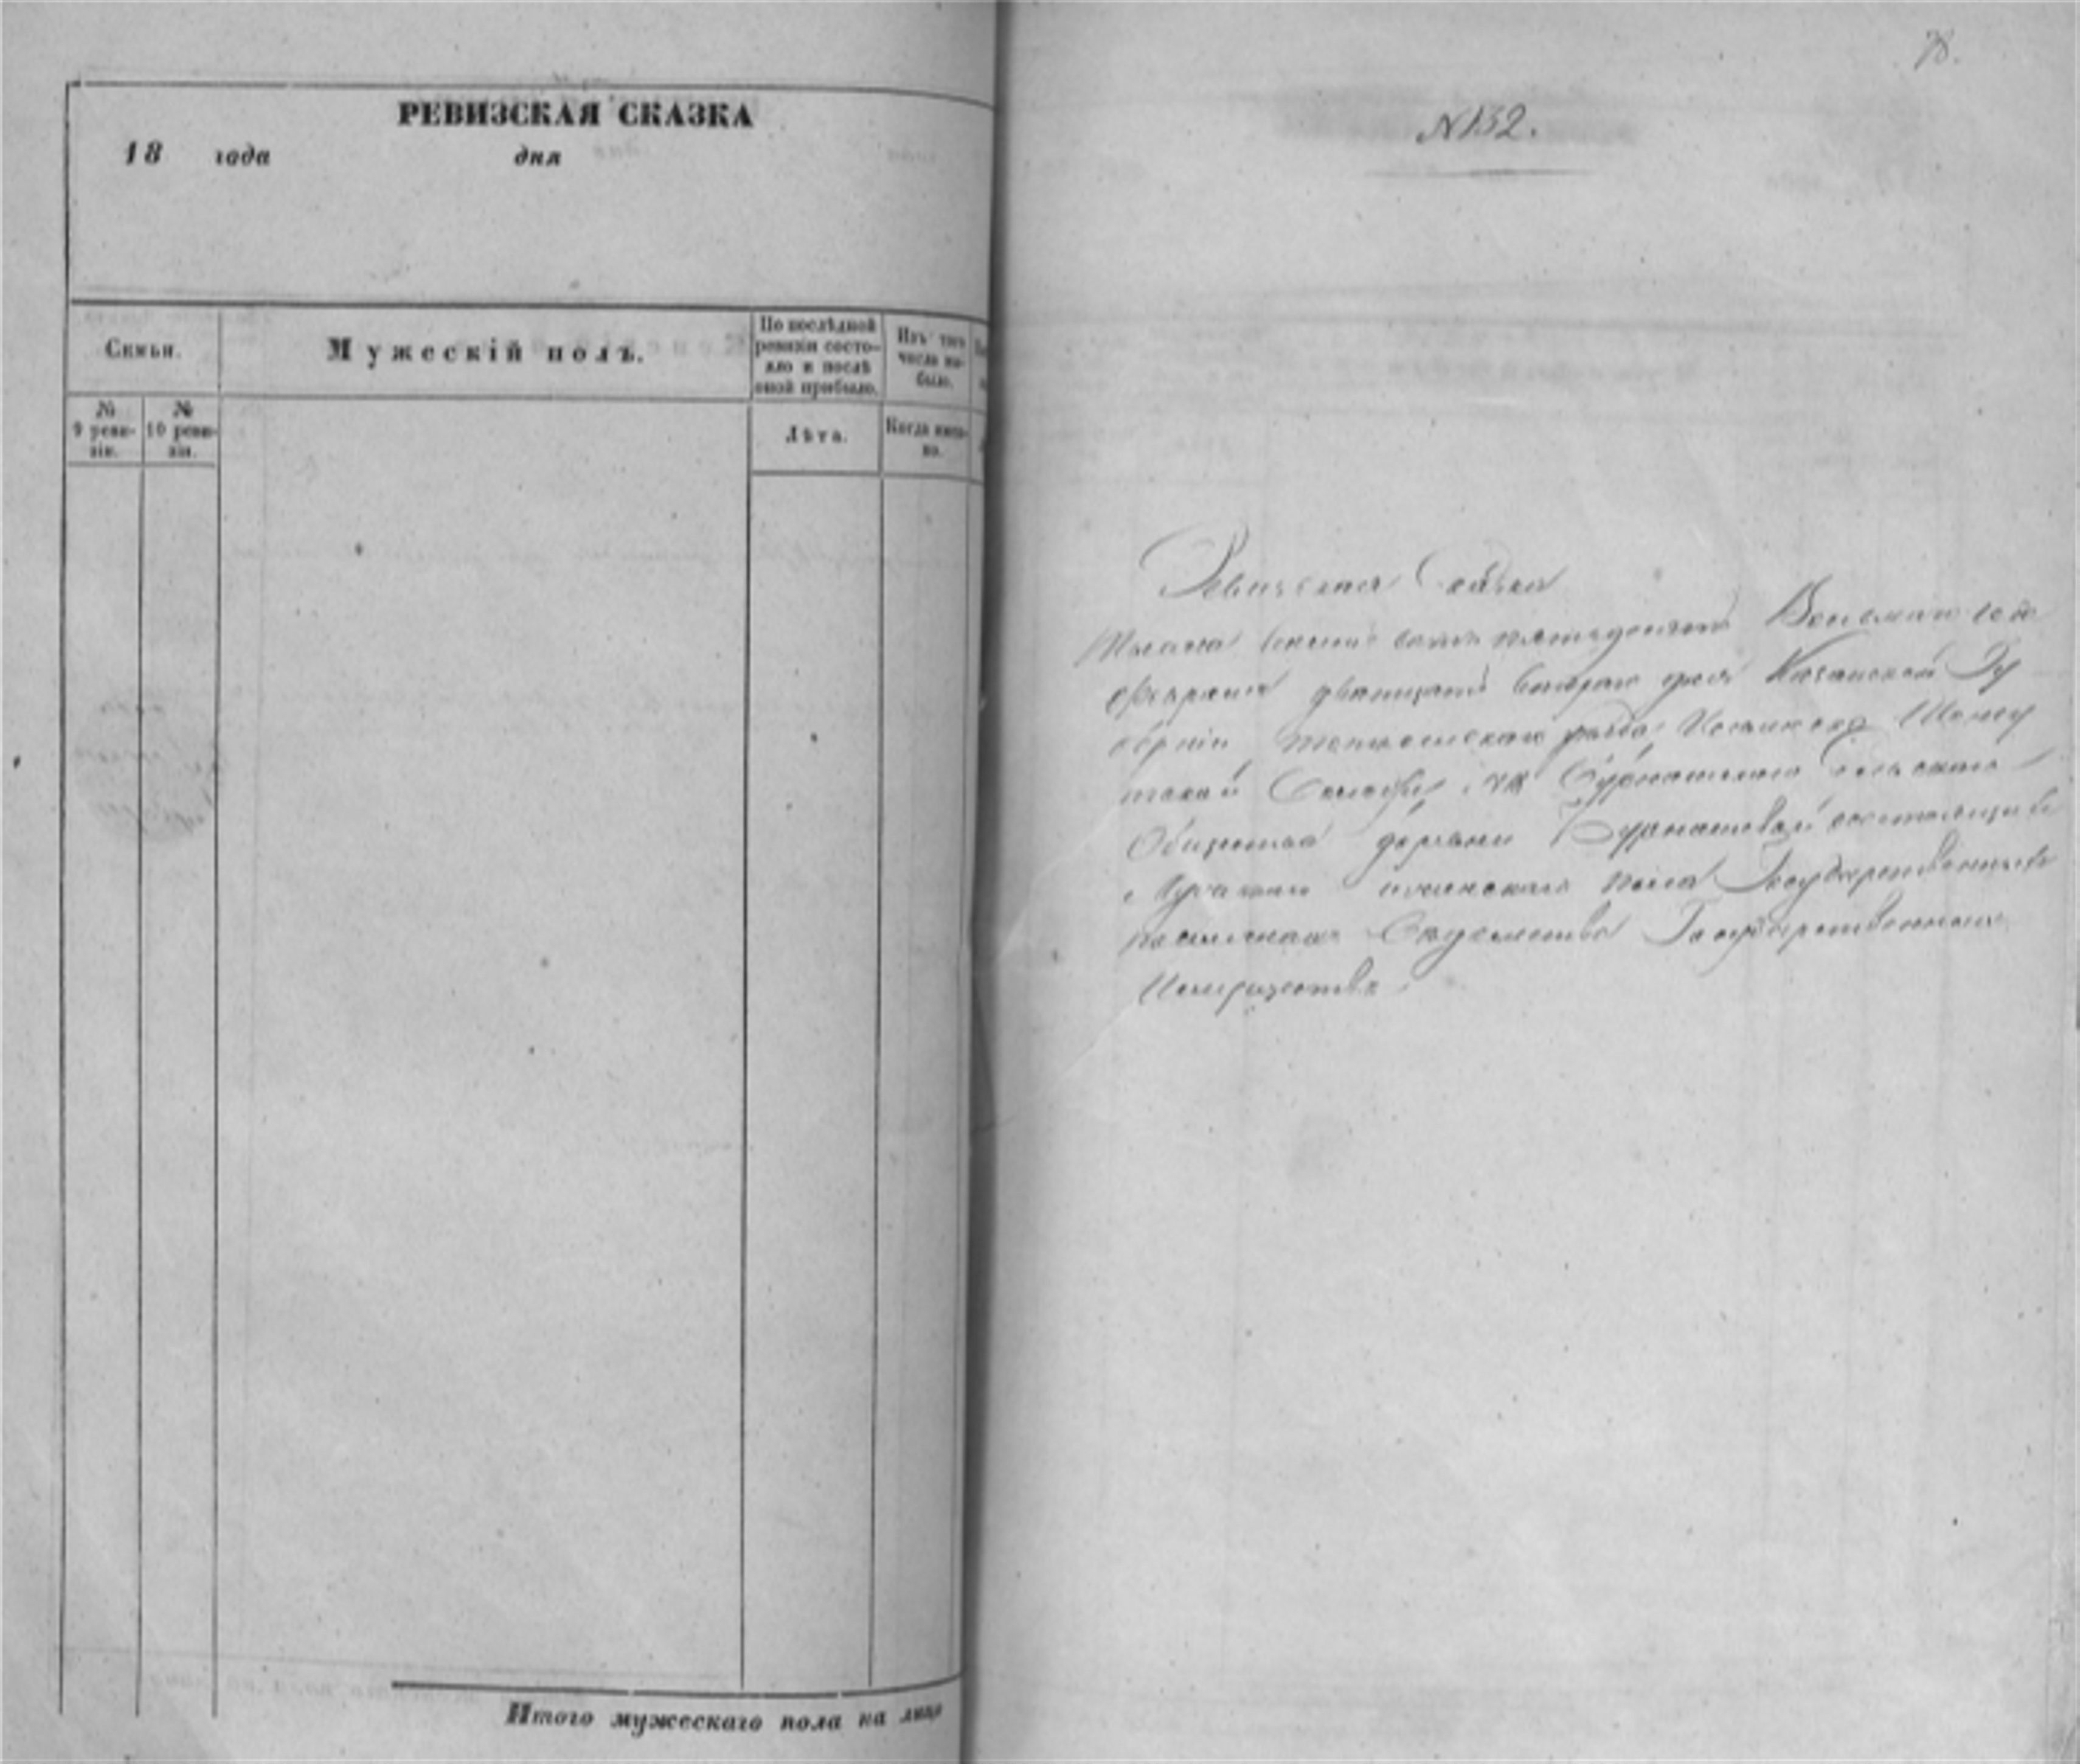 РЕВИЗСКАЯ СКАЗКА
18 года дня
Семьи.
Мужескій полъ.
По послѣдней
ревизіи состо-
яло и послѣ
оной прибыло.
Изъ того
числа вы-
было.
№
9 реви-
зіи.
№
10 реви-
зіи.
Лѣта.
Когда имен-
но.
Итого мужескаго пола на лицо
78.
N 132.
Ревизская Сказка
Тысяча восемь сотъ пятьдесятъ Восьмаго года
Февраля двадцать втораго дня Казанской Гу
берніи, Тетюшскаго уѣзда,
Сельскаго
Общества деревни Бурнашевой состоящихъ
пола Государственныхъ
Вѣдомства Государственныхъ
Имуществъ.